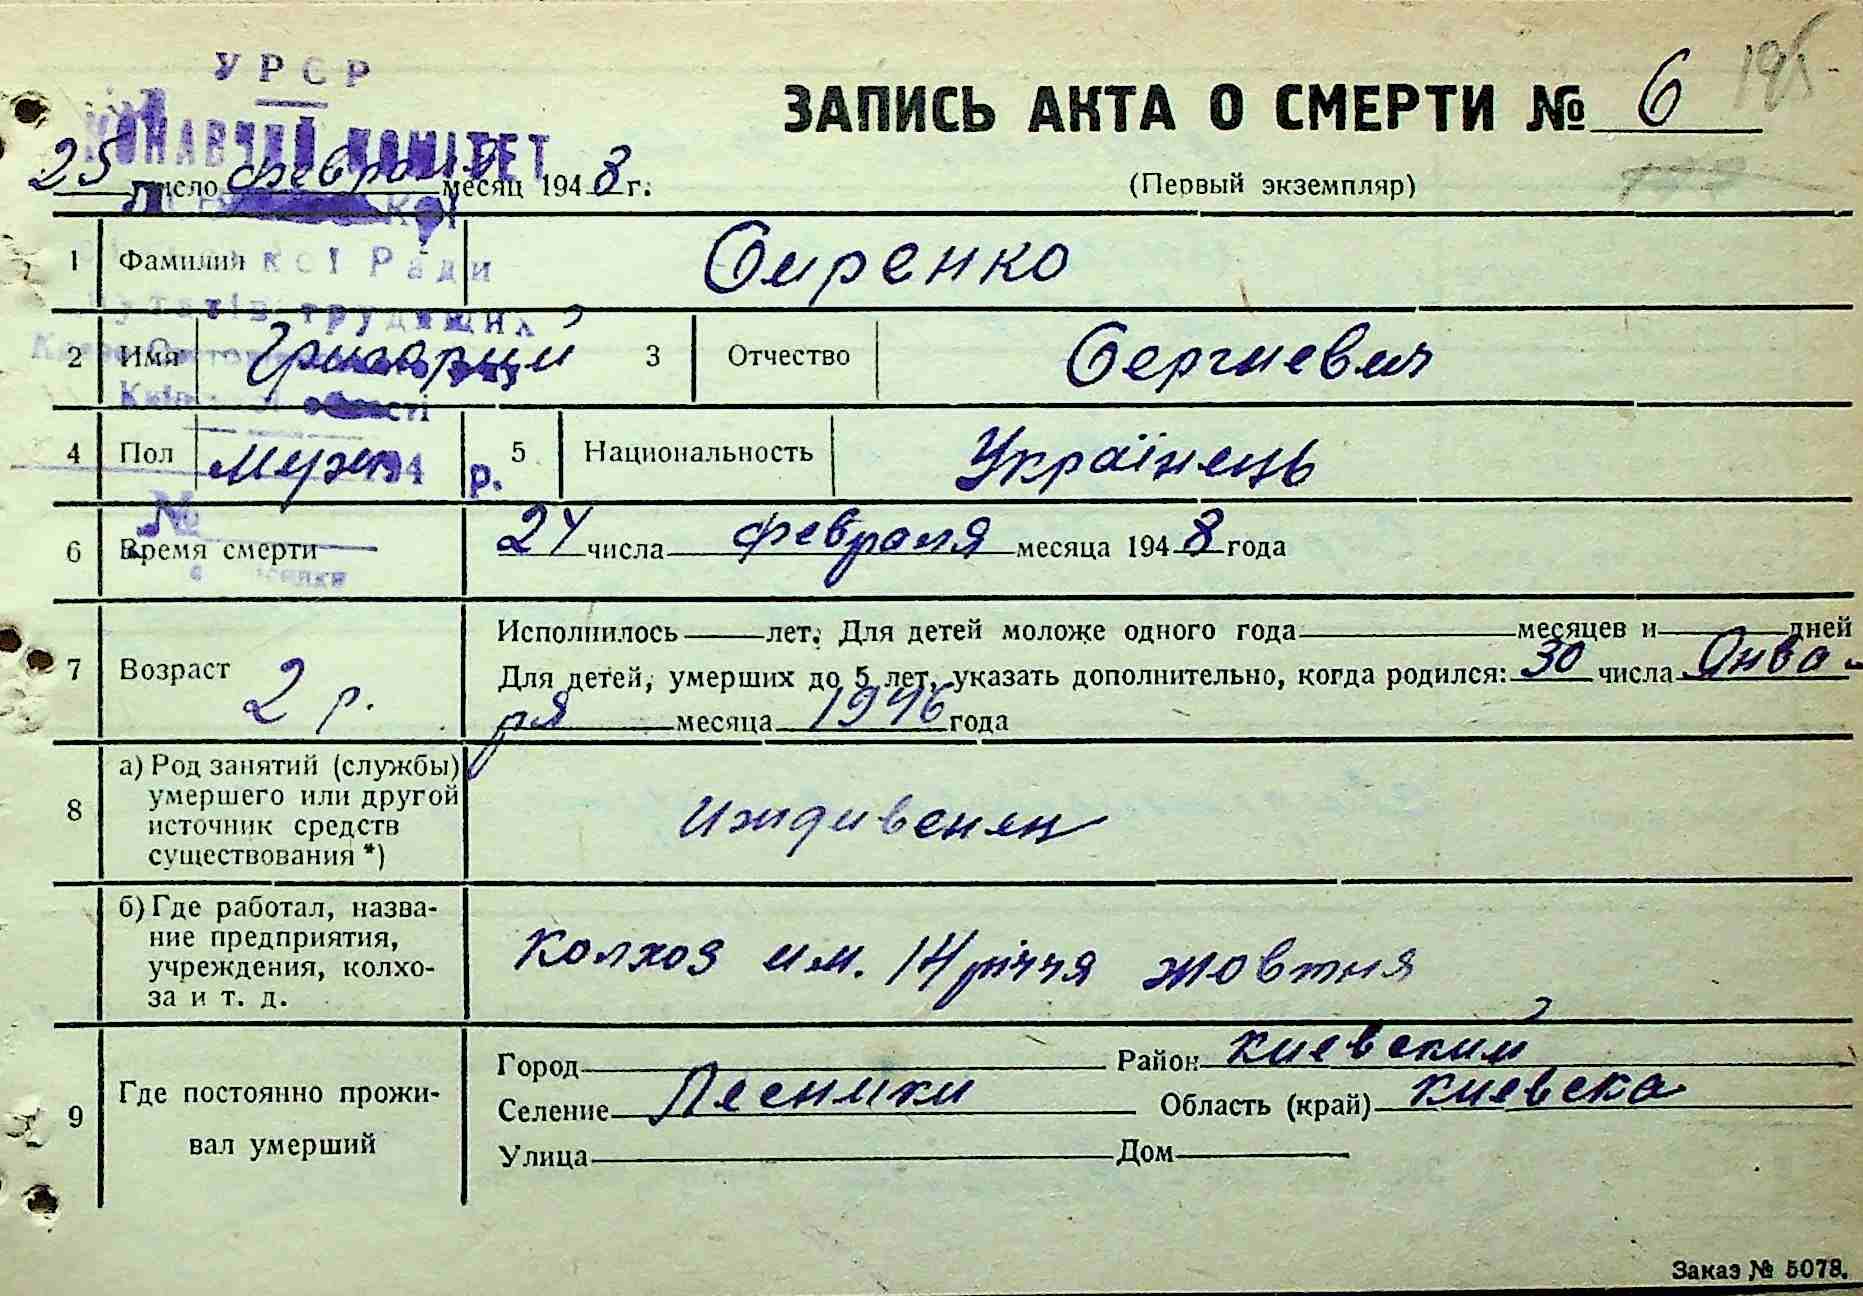 УРСР
ЗАПИСЬ АКТА О СМЕРТИ № 6
195
КОНАВЧИЙ КОМІТЕТ
25 число февраля месяц 1948 г.
(Первый экземпляр)
кої Ради
1 Фамилия Сиренко
трудящих
2 Имя Григорий 3 Отчество Сергиевич
області
4 Пол муж 5 Национальность Українець
194 р.
№
6 Время смерти 24 числа февраля месяца 1948 года
7 Возраст 2 р. Исполнилось лет. Для детей моложе одного года месяцев и дней
Для детей, умерших до 5 лет, указать дополнительно, когда родился: 30 числа Янва-
ря месяца 1946 года
8 а) Род занятий (службы)
умершего или другой
источник средств
существования *)
иждивенец
б) Где работал, назва-
ние предприятия,
учреждения, колхо-
за и т. д.
колхоз им. 14 річчя жовтня
9 Где постоянно прожи-
вал умерший
Город Район киевский
Селение Лесники Область (край) киевска
Улица Дом
Заказ № 5078.